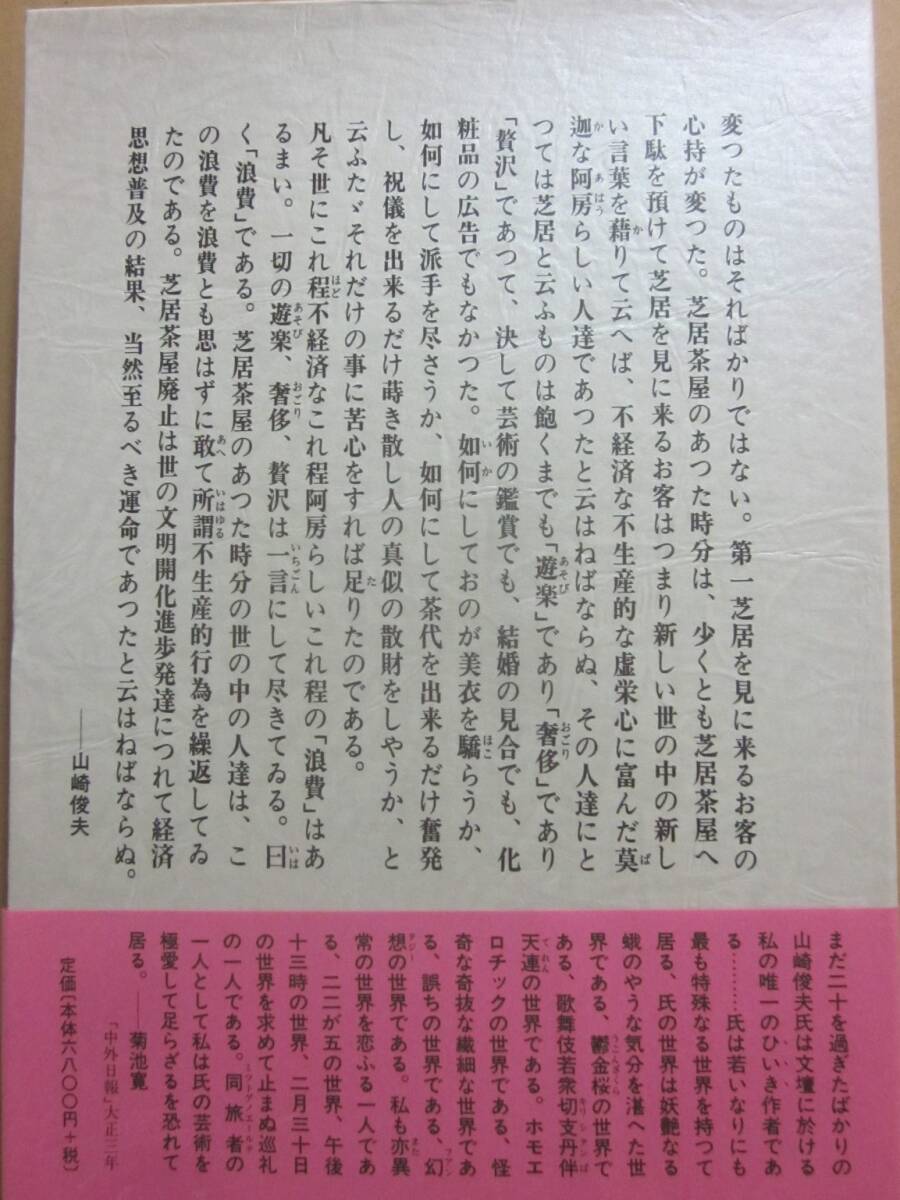 変つたものはそればかりではない。第一芝居を見に来るお客の
心持が変つた。芝居茶屋のあつた時分は、少くとも芝居茶屋へ
下駄を預けて芝居を見に来るお客はつまり新しい世の中の新し
い言葉を藉りて云へば、不経済な不生産的な虚栄心に富んだ莫
迦な阿房らしい人達であつたと云はねばならぬ、その人達にと
つては芝居と云ふものは飽くまでも「遊楽」であり「奢侈」であり
「贅沢」であつて、決して芸術の鑑賞でも、結婚の見合でも、化
粧品の広告でもなかつた。如何にしておのが美衣を驕らうか、
如何にして派手を尽さうか、如何にして茶代を出来るだけ奮発
し、祝儀を出来るだけ蒔き散し人の真似の散財をしやうか、と
云ふたゞそれだけの事に苦心をすれば足りたのである。
凡そ世にこれ程不経済なこれ程阿房らしいこれ程の「浪費」はあ
るまい。一切の遊楽、奢侈、贅沢は一言にして尽きてゐる。曰
く「浪費」である。芝居茶屋のあつた時分の世の中の人達は、こ
の浪費を浪費とも思はずに敢て所謂不生産的行為を繰返してゐ
たのである。芝居茶屋廃止は世の文明開化進歩発達につれて経済
思想普及の結果、当然至るべき運命であつたと云はねばならぬ。
――山崎俊夫
まだ二十を過ぎたばかりの
山崎俊夫氏は文壇に於ける
私の唯一のひいき作者であ
る………氏は若いなりにも
最も特殊なる世界を持つて
居る、氏の世界は妖艶なる
蛾のやうな気分を湛へた世
界である、鬱金桜の世界で
ある、歌舞伎若衆切支丹伴
天連の世界である。ホモエ
ロチックの世界である、怪
奇な奇抜な繊細な世界であ
る、誤ちの世界である、幻
想の世界である。私も亦異
常の世界を恋ふる一人であ
る、二二が五の世界、午後
十三時の世界、二月三十日
の世界を求めて止まぬ巡礼
の一人である。同旅者の
一人として私は氏の芸術を
極愛して足らざるを恐れて
居る。――菊池寛
「中外日報」大正三年
定価[本体六八〇〇円+税]